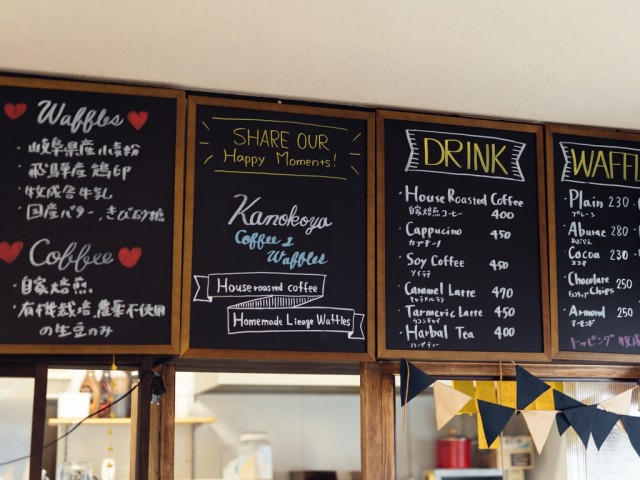 Waffles
・岐阜県産小麦粉
・飛騨産 鶏卵
・牧成舎牛乳
・国産バター、きび砂糖
Coffee
・自家焙煎
・有機栽培、農薬不使用
の生豆のみ
SHARE OUR
Happy Moments!
Kanokoya
Coffee &
Waffles
House roasted coffee
Homemade Liege Waffles
DRINK
・House Roasted Coffee
自家焙煎コーヒー 400
・Cappucino 450
カプチーノ
・Soy Coffee 450
ソイラテ
・Caramel Latte 470
キャラメルラテ
・Tarmeric Latte 450
ウコンラテ
・Harbal Tea 400
ハーブティー
WAFFL
・Plain 230
プレーン
・Aburae 280
あぶらえ
・Cocoa 230
ココア
・Chocolate
Chips 250
・Armond 250
アーモンド
トッピング 牧成